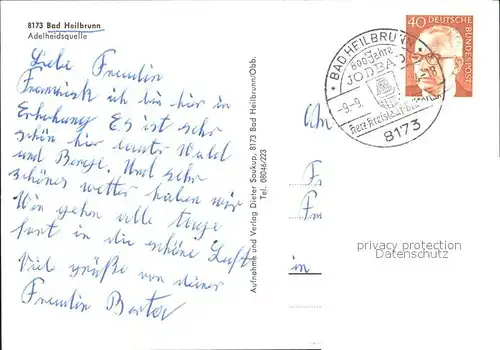 8173 Bad Heilbrunn
Adelheidsquelle
Liebe Freundin
Franzisk ich bin hir in
Erholung Es ist sehr
schön hir lauter Wald
und Berge. Und sehr
schönes wetter haben wir
Wir gehen alle tage
fort in die schöne Luft
Viel grüße von deiner
Freundin Berta
Aufnahme und Verlag Dieter Soukup, 8173 Bad Heilbrunn/Obb.
Tel. 08046/223
BAD HEILBRUNN
600 Jahre
JODBAD
-9.-9.
8173
40
DEUTSCHE
BUNDESPOST
An
Fr
in
privacy protection
Datenschutz